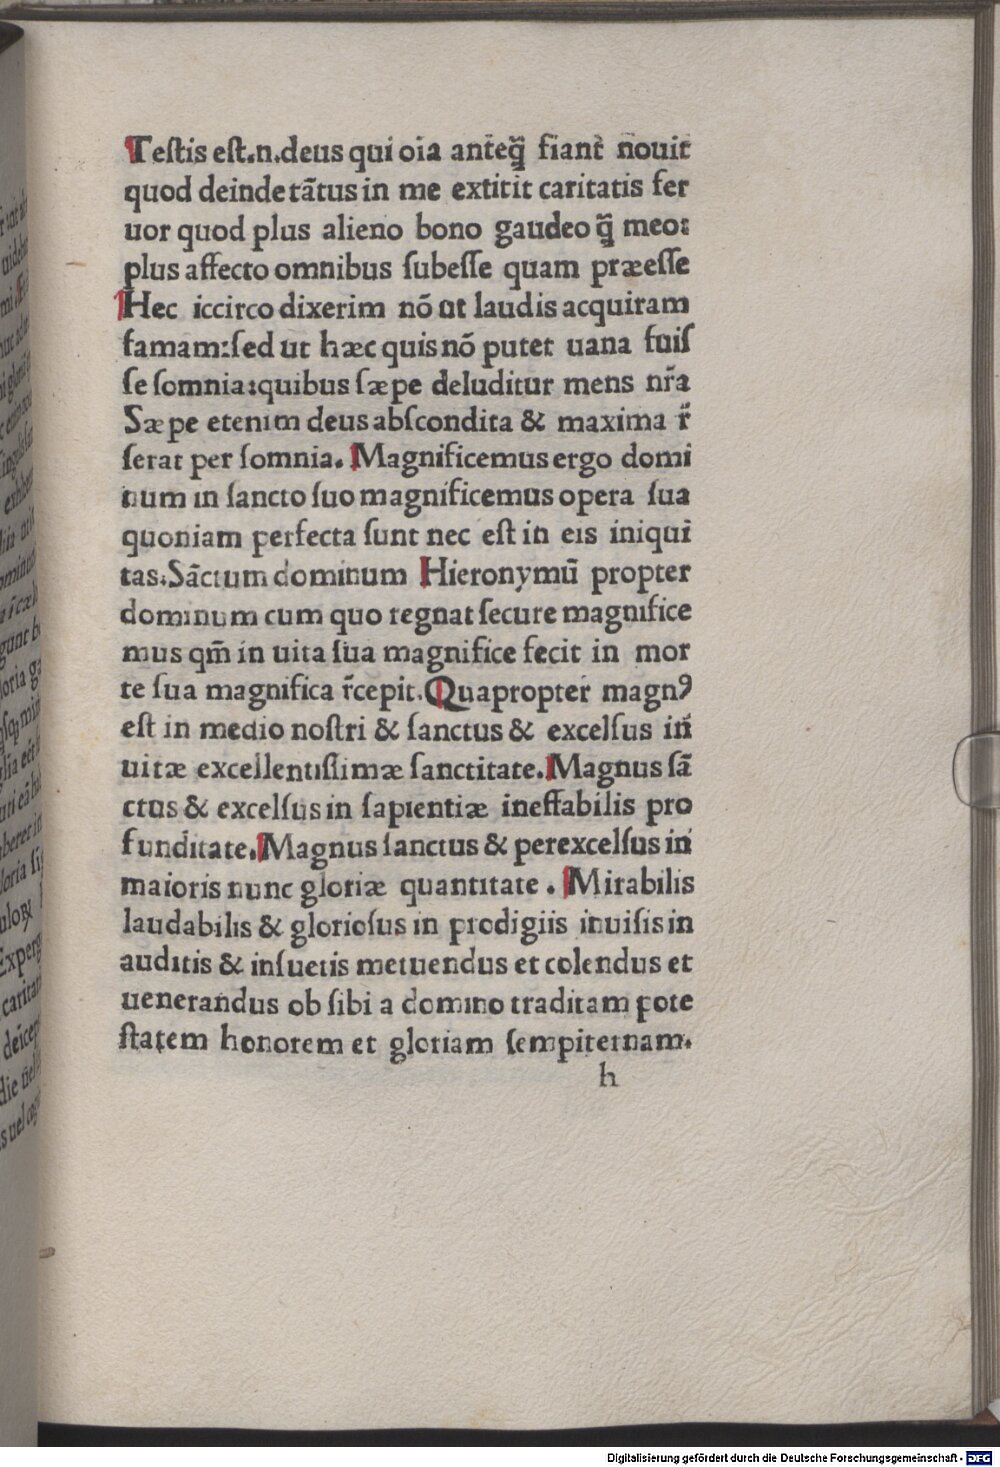 Teſtis eſt.n.deus qui oia anteq̃ fiant̃ nouit
quod deinde tãtus in me extitit caritatis fer
uor quod plus alieno bono gaudeo q̃ meo:
plus affecto omnibus ſubeſſe quam præeſſe
Hec iccirco dixerim nõ ut laudis acquiram
famam:ſed ut hæc quis nõ putet uana fuiſ
ſe ſomnia:quibus ſæpe deluditur mens nr̃a
Sæpe etenim deus abſcondita & maxima r̃
ſerat per ſomnia. Magnificemus ergo domi
num in ſancto ſuo magnificemus opera ſua
quoniam perfecta ſunt nec eſt in eis iniqui
tas.Sãctum dominum Hieronymũ propter
dominum cum quo regnat ſecure magnifice
mus qm̃ in uita ſua magnifice fecit in mor
te ſua magnifica r̃cepit.Quapropter magnꝰ
eſt in medio noſtri & ſanctus & excelſus in
uitæ excellentiſſimæ ſanctitate.Magnus ſã
ctus & excelſus in ſapientiæ ineffabilis pro
funditate.Magnus ſanctus & perexcelſus in
maioris nunc gloriæ quantitate . Mirabilis
laudabilis & glorioſus in prodigiis inuiſis in
auditis & inſuetis metuendus et colendus et
uenerandus ob ſibi a domino traditam pote
ſtatem honorem et gloriam ſempiternam.
h
Digitalisierung gefördert durch die Deutsche Forschungsgemeinschaft - DFG